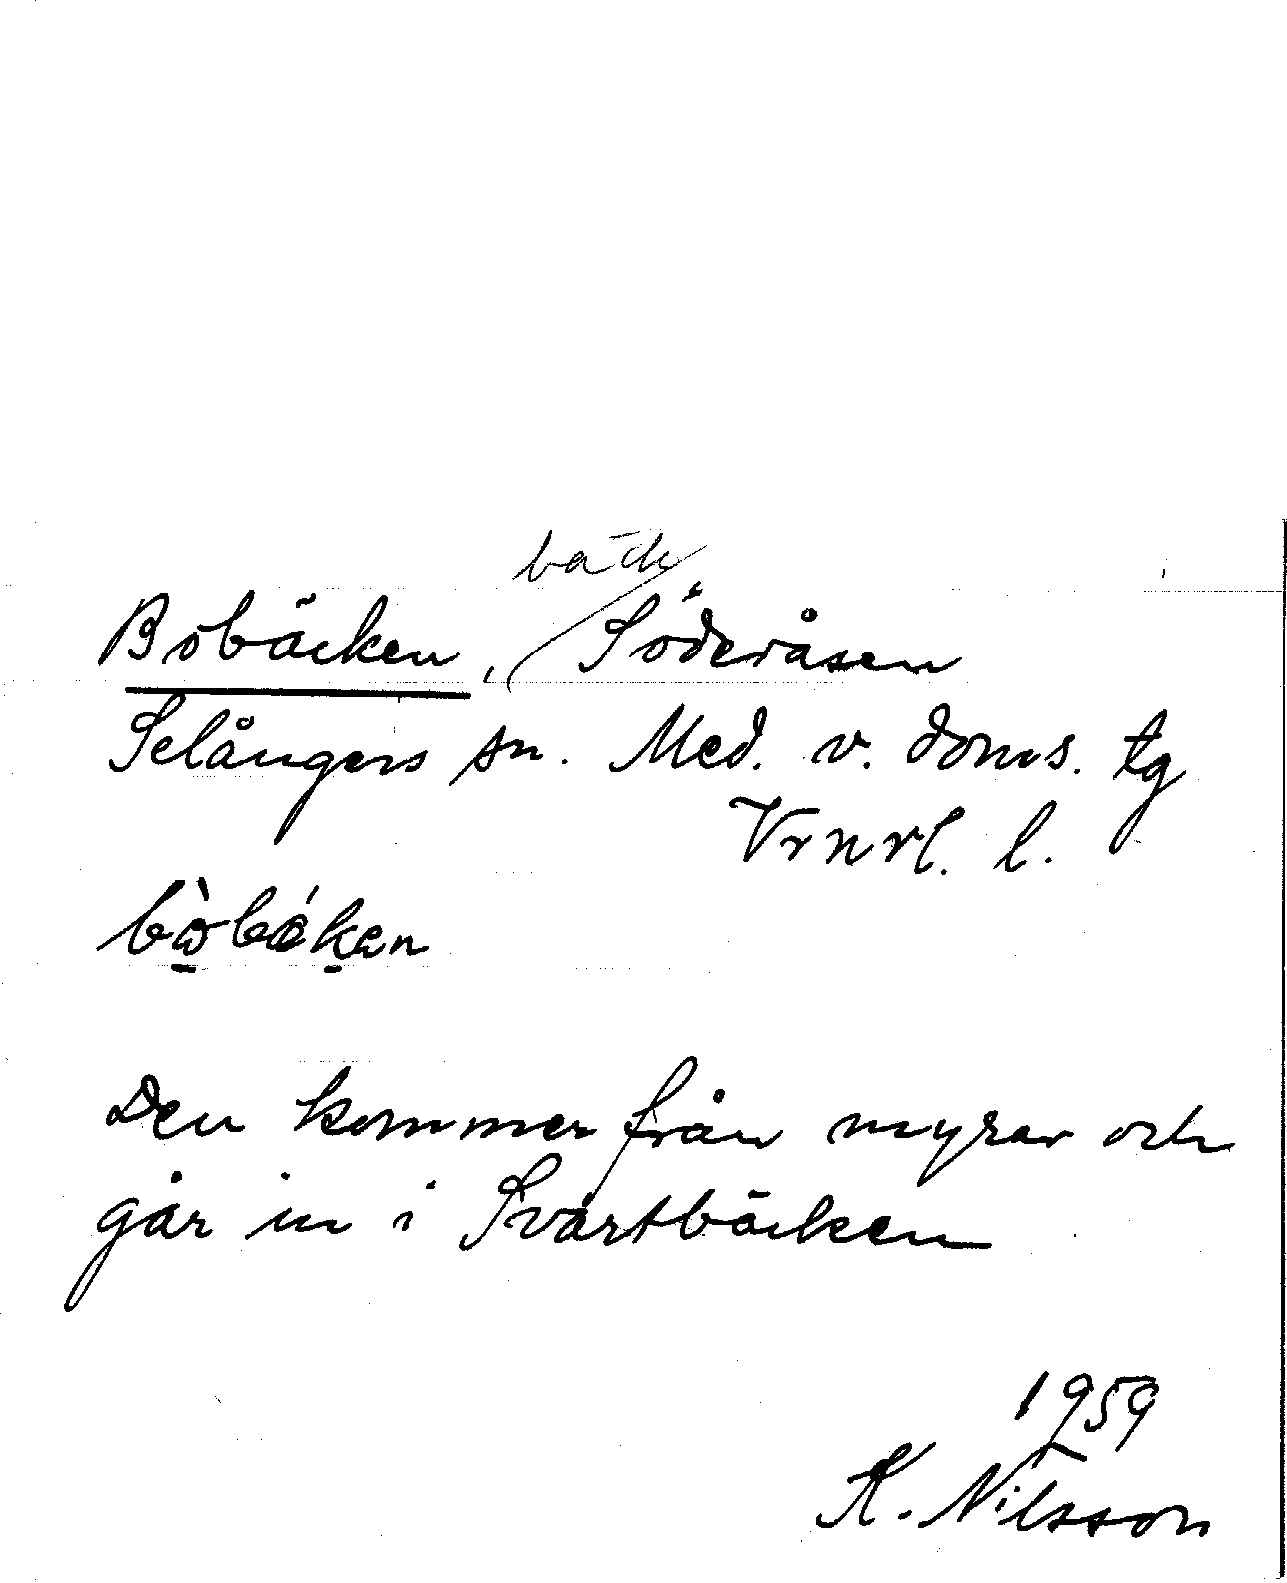 bäck
Bobäcken, Söderåsen
Selångers sn. Med. v. doms. tg
Vrnrl. l.
Den kommer från myrar och
går in i Svartbäcken
1959
K. Nilsson